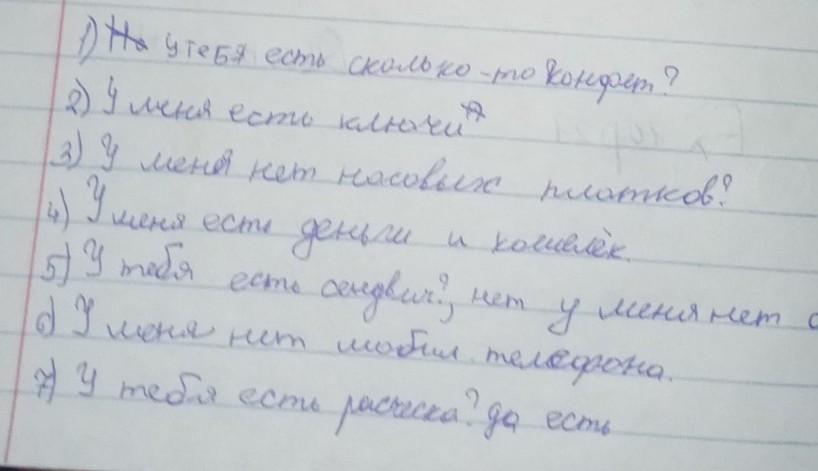 1) У тебя есть сколько-то конфет?
2) У меня есть ключи
3) У меня нет насовых платков?
4) У меня есть деньги и кошелёк.
5) У тебя есть сендвич?, нет у меня нет с
6) У меня нет мобил. телефона.
7) У тебя есть расческа? да есть